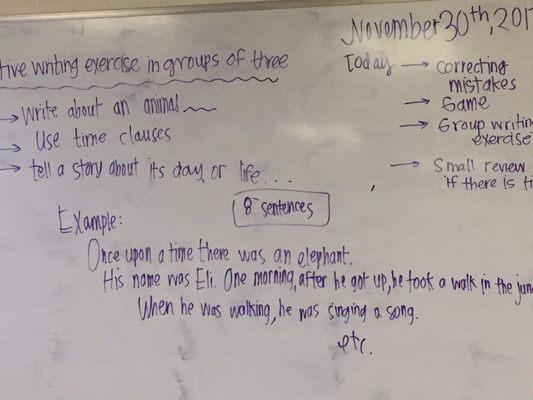 November 30th, 201
tive writing exercise in groups of three
→ Write about an animal
→ Use time clauses
→ tell a story about its day, or life...
8 sentences
Today → correcting
mistakes
→ Game
→ Group writin
exercise
→ Small review
if there is ti
Example:
Once upon a time there was an elephant.
His name was Eli. One morning, after he got up, he took a walk in the jun
When he was walking, he was singing a song.
etc.